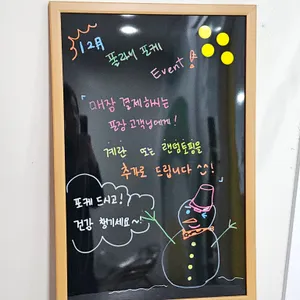 12월
플라워 포케
Event!
매장 결제하시는
포장 고객님에게!
계란 또는 랜덤토핑을
추가로 드립니다 ^^!
포케 드시고!
건강 챙기세요~